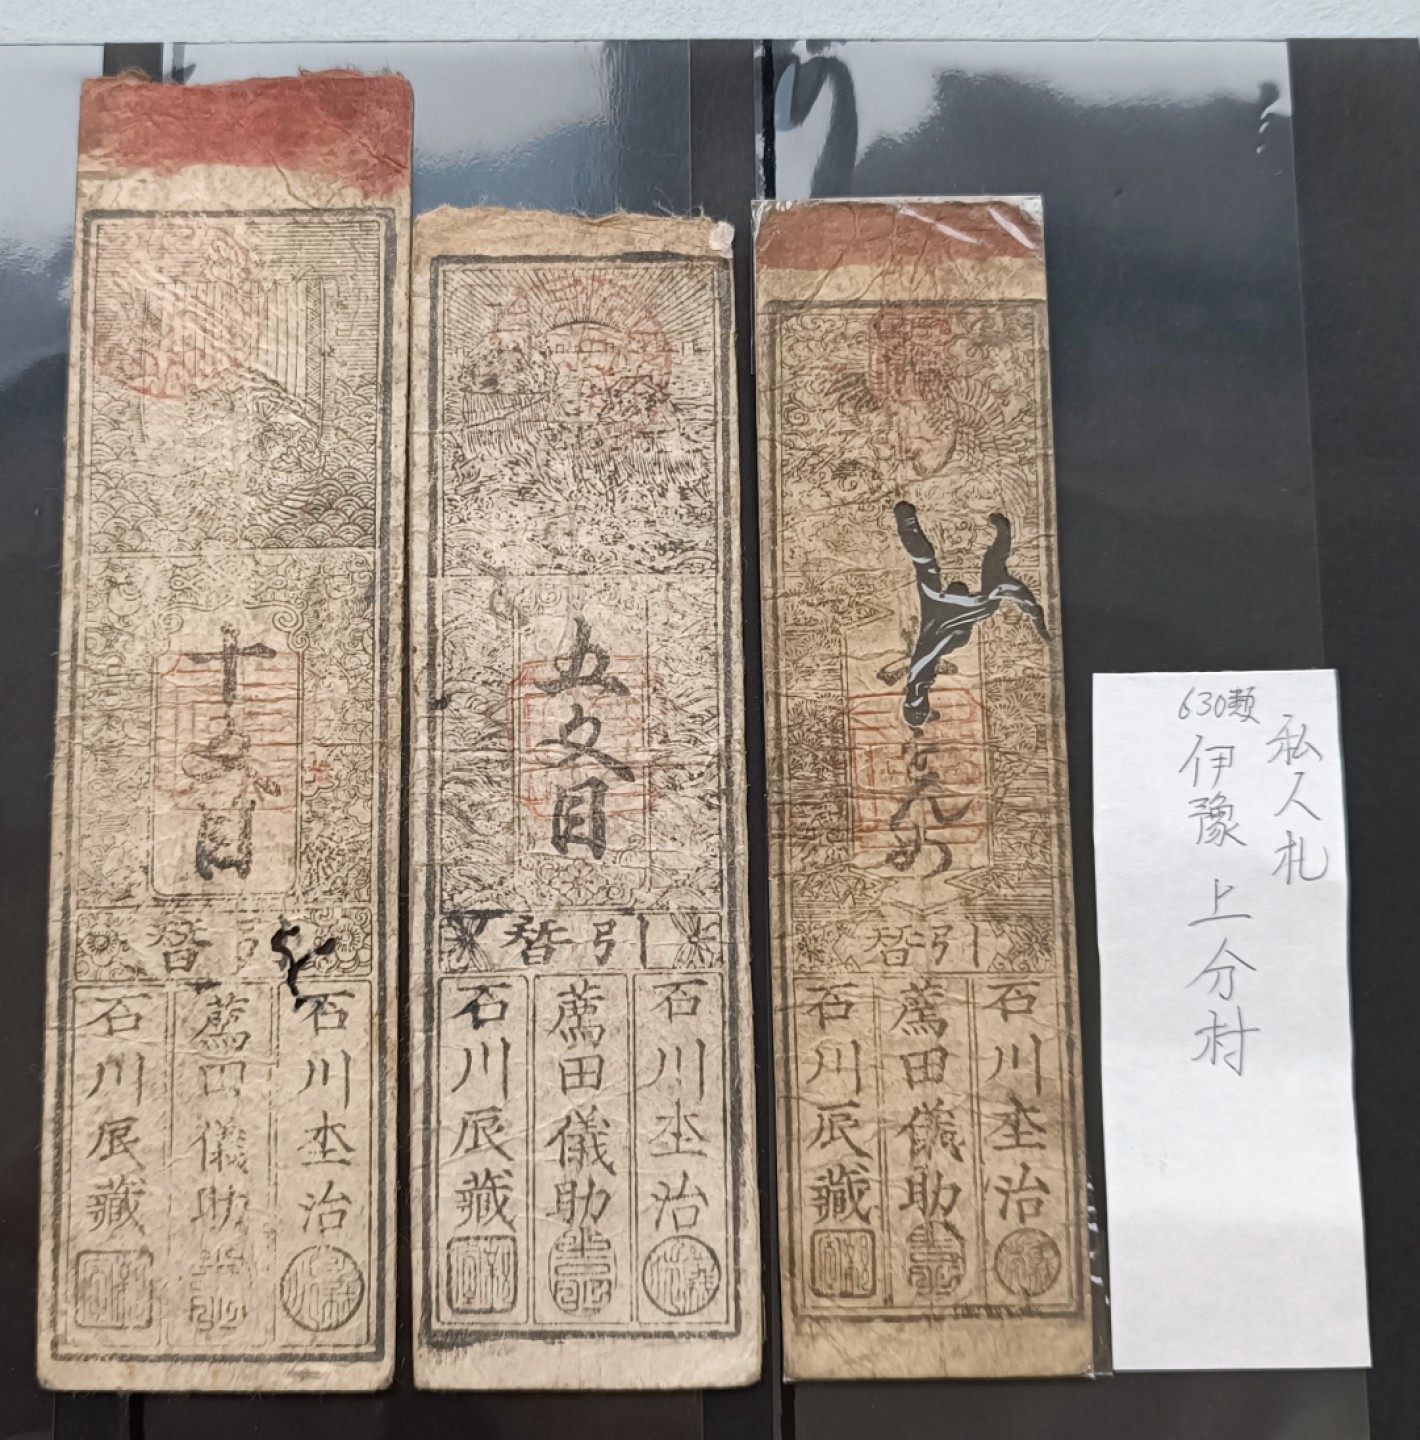 十文目
引替
石川𡉻治
薦田儀助
石川辰藏
五文目
引替
石川𡉻治
薦田儀助
石川辰藏
引替
石川𡉻治
薦田儀助
石川辰藏
私人札
630類
伊豫 上分村